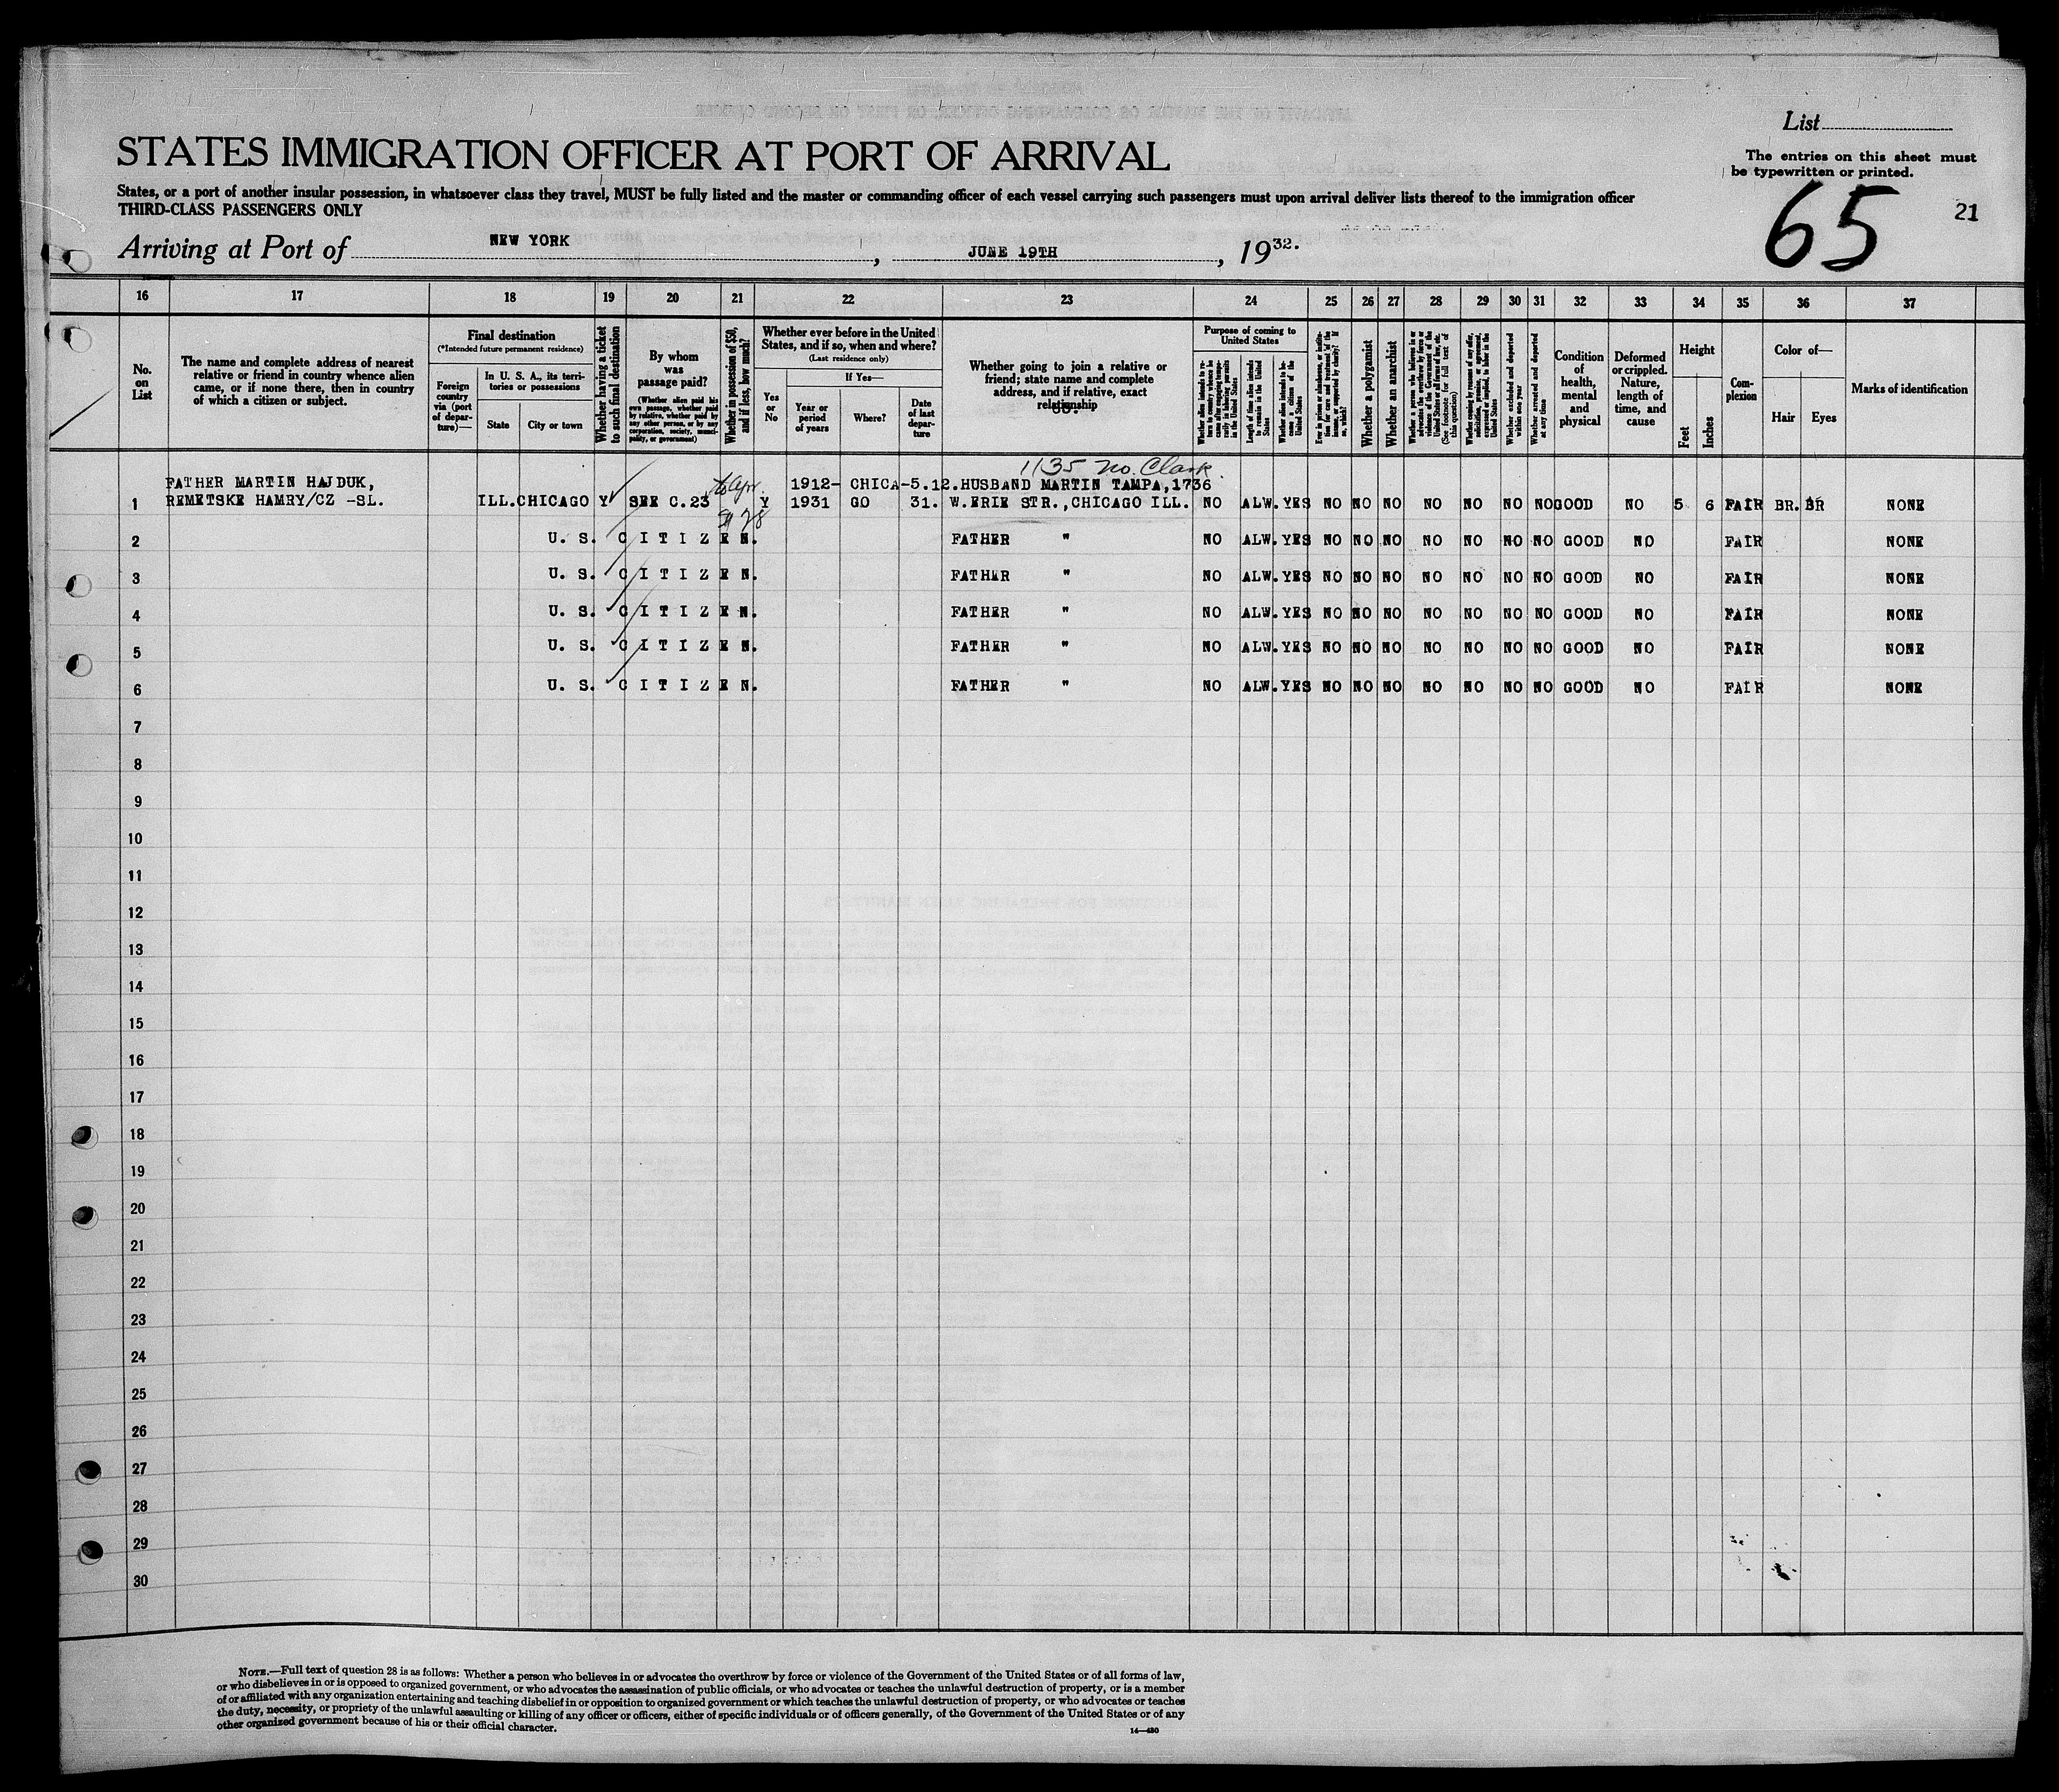 List
STATES IMMIGRATION OFFICER AT PORT OF ARRIVAL
The entries on this sheet must
be typewritten or printed.
States, or a port of another insular possession, in whatsoever class they travel, MUST be fully listed and the master or commanding officer of each vessel carrying such passengers must upon arrival deliver lists thereof to the immigration officer
THIRD-CLASS PASSENGERS ONLY
65 21
Arriving at Port of NEW YORK, JUNE 19TH, 1932.
16 17 18 19 20 21 22 23 24 25 26 27 28 29 30 31 32 33 34 35 36 37
No.
on
List
The name and complete address of nearest
relative or friend in country whence alien
came, or if none there, then in country
of which a citizen or subject.
Final destination
(*Intended future permanent residence)
Foreign
country
via (port
of depar-
ture)—
In U. S. A., its terri-
tories or possessions
State City or town
Whether having a ticket
to such final destination
By whom
was
passage paid?
(Whether alien paid his
own passage, whether paid
by relative, whether paid by
any other person, or by any
corporation, society, munici-
pality, or government)
Whether in possession of $50,
and if less, how much?
Whether ever before in the United
States, and if so, when and where?
(Last residence only)
Yes
or
No
If Yes—
Year or
period
of years
Where?
Date
of last
depar-
ture
Whether going to join a relative or
friend; state name and complete
address, and if relative, exact
relationship
Purpose of coming to
United States
Whether alien intends to re-
turn to country whence he
came after engaging tempo-
rarily in laboring pursuits
in the United States
Length of time alien intends
to remain in the United
States
Whether alien intends to be-
come a citizen of the
United States
Ever in prison or almshouse, or institu-
tion for care and treatment of the
insane, or supported by charity? If
so, which?
Whether a polygamist
Whether an anarchist
Whether a person who believes in or
advocates the overthrow by force or
violence of the Government of the
United States or all forms of law, etc.
(See footnote for full text of
this question)
Whether coming by reason of any offer,
solicitation, promise, or agreement,
expressed or implied, to labor in the
United States
Whether excluded and deported
within one year
Whether arrested and deported
at any time
Condition
of
health,
mental
and
physical
Deformed
or crippled.
Nature,
length of
time, and
cause
Height
Feet Inches
Com-
plexion
Color of—
Hair Eyes
Marks of identification
1135 No. Clark
FATHER MARTIN HAJDUK, to Apr. 1912- CHICA-5.12.HUSBAND MARTIN TAMPA,1736
1 REMETSKE HAMRY/CZ -SL. ILL.CHICAGO Y SEE C.23 Y 1931 GO 31. W.ERIE STR.,CHICAGO ILL. NO ALW.YES NO NO NO NO NO NO NO GOOD NO 5 6 FAIR BR. BR NONE
2 U. S. C I T I Z E N. FATHER " NO ALW.YES NO NO NO NO NO NO NO GOOD NO FAIR NONE
3 U. S. C I T I Z E N. FATHER " NO ALW.YES NO NO NO NO NO NO NO GOOD NO FAIR NONE
4 U. S. C I T I Z E N. FATHER " NO ALW.YES NO NO NO NO NO NO NO GOOD NO FAIR NONE
5 U. S. C I T I Z E N. FATHER " NO ALW.YES NO NO NO NO NO NO NO GOOD NO FAIR NONE
6 U. S. C I T I Z E N. FATHER " NO ALW.YES NO NO NO NO NO NO NO GOOD NO FAIR NONE
7
8
9
10
11
12
13
14
15
16
17
18
19
20
21
22
23
24
25
26
27
28
29
30
NOTE.—Full text of question 28 is as follows: Whether a person who believes in or advocates the overthrow by force or violence of the Government of the United States or of all forms of law,
or who disbelieves in or is opposed to organized government, or who advocates the assassination of public officials, or who advocates or teaches the unlawful destruction of property, or is a member
of or affiliated with any organization entertaining and teaching disbelief in or opposition to organized government or which teaches the unlawful destruction of property, or who advocates or teaches
the duty, necessity, or propriety of the unlawful assaulting or killing of any officer or officers, either of specific individuals or of officers generally, of the Government of the United States or of any
other organized government because of his or their official character.
14—430